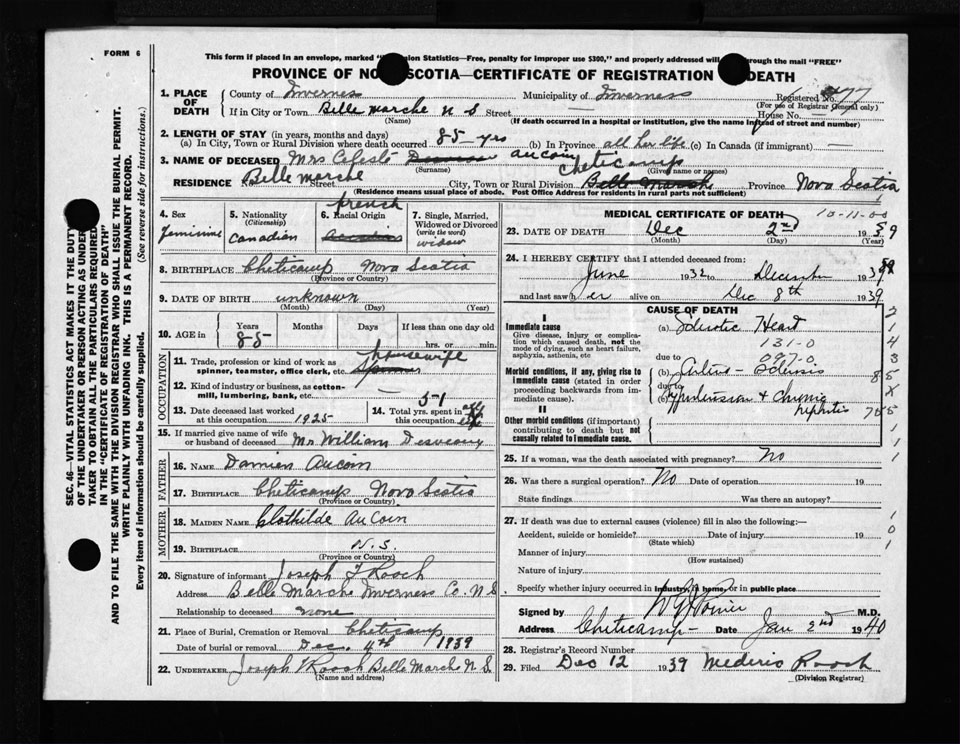 FORM 6
This form if placed in an envelope, marked "ion Statistics—Free, penalty for improper use $300," and properly addressed will through the mail "FREE"
PROVINCE OF NO SCOTIA—CERTIFICATE OF REGISTRATION DEATH
SEC. 46—VITAL STATISTICS ACT MAKES IT THE DUTY
OF THE UNDERTAKER OR PERSON ACTING AS UNDER
TAKER TO OBTAIN ALL THE PARTICULARS REQUIRED
IN THE "CERTIFICATE OF REGISTRATION OF DEATH"
AND TO FILE THE SAME WITH THE DIVISION REGISTRAR WHO SHALL ISSUE THE BURIAL PERMIT.
WRITE PLAINLY WITH UNFADING INK. THIS IS A PERMANENT RECORD.
Every item of information should be carefully supplied. (See reverse side for instructions.)
1. PLACE OF DEATH
County of Inverness Municipality of Inverness Registered No. 77
(For use of Registrar General only)
If in City or Town Belle Marche N S Street House No.
(Name) (If death occurred in a hospital or institution, give the name instead of street and number)
2. LENGTH OF STAY (in years, months and days)
(a) In City, Town or Rural Division where death occurred 85 - yrs (b) In Province all her life (c) In Canada (if immigrant) —
3. NAME OF DECEASED Mrs Celeste Aucoin
(Surname) (Given name or names)
Cheticamp
RESIDENCE Belle Marche Street City, Town or Rural Division Belle Marche Province Nova Scotia
(Residence means usual place of abode. Post Office Address for residents in rural parts not sufficient)
4. Sex
Feminine
5. Nationality
(Citizenship)
Canadian
french
6. Racial Origin
Acadian
7. Single, Married, Widowed or Divorced
(write the word)
widow
8. BIRTHPLACE Cheticamp Nova Scotia
(Province or Country)
9. DATE OF BIRTH unknown
(Month) (Day) (Year)
10. AGE in Years Months Days If less than one day
85 hrs. or min.
OCCUPATION
11. Trade, profession or kind of work as spinner, teamster, office clerk, etc. housewife
12. Kind of industry or business, as cotton-mill, lumbering, bank, etc.
51
13. Date deceased last worked at this occupation 1925
14. Total yrs. spent in this occupation all life
15. If married give name of wife or husband of deceased Mr William Desveaux
FATHER
16. NAME Damien Aucoin
17. BIRTHPLACE Cheticamp Nova Scotia
(Province or Country)
MOTHER
18. MAIDEN NAME Clothilde AuCoin
19. BIRTHPLACE N.S.
(Province or Country)
20. Signature of informant Joseph F Roach
Address Belle Marche Inverness Co. N.S.
Relationship to deceased none
21. Place of Burial, Cremation or Removal Cheticamp
Date of burial or removal Dec. 4th 1939
22. UNDERTAKER Joseph F Roach Belle Marche N.S.
(Name and address)
MEDICAL CERTIFICATE OF DEATH 10-11-00
23. DATE OF DEATH Dec 2nd 1939
(Month) (Day) (Year)
24. I HEREBY CERTIFY that I attended deceased from:
June 1932 to December 1939
and last saw her alive on Dec 8th 1939
CAUSE OF DEATH
I
Immediate cause
Give disease, injury or complication which caused death, not the mode of dying, such as heart failure, asphyxia, asthenia, etc
(a) Sclerotic Heart
131-0
due to 097-0
Morbid conditions, if any, giving rise to immediate cause (stated in order proceeding backwards from immediate cause).
(b) Arterio-Sclerosis
due to
(c) Hypertension & Chronic nephritis
II
Other morbid conditions (if important) contributing to death but not causally related to immediate cause.
25. If a woman, was the death associated with pregnancy? No
26. Was there a surgical operation? No Date of operation 19
State findings Was there an autopsy?
27. If death was due to external causes (violence) fill in also the following:—
Accident, suicide or homicide? Date of injury 19
(State which)
Manner of injury
(How sustained)
Nature of injury
Specify whether injury occurred in industry, in home, or in public place
Signed by M.D.
Address Cheticamp - Date Jan 2nd 1940
28. Registrar's Record Number
29. Filed Dec 12 1939 Mederic Roach
(Division Registrar)